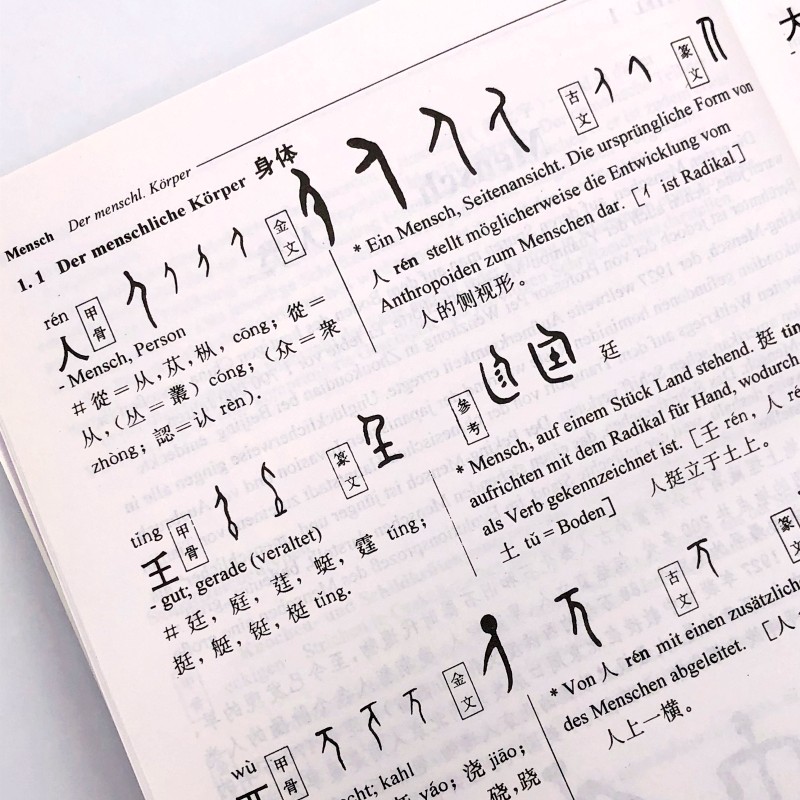 Mensch Der menschl. Körper
1.1 Der menschliche Körper 身体
rén 甲骨 金文 古文 篆文
人
- Mensch, Person
# 從＝从, 苁, 枞, cōng; 從＝
从, (丛＝叢) cóng; (众＝衆
zhòng; 認＝认 rèn).
* Ein Mensch, Seitenansicht. Die ursprüngliche Form von
人 rén stellt möglicherweise die Entwicklung vom
Anthropoiden zum Menschen dar. [亻 ist Radikal]
人的侧视形。
tǐng 甲骨 篆文 参考 廷
- gut; gerade (veraltet)
# 廷, 庭, 莛, 蜓, 霆 tíng;
挺, 艇, 铤, 梃 tǐng.
* Mensch, auf einem Stück Land stehend. 挺
aufrichten mit dem Radikal für Hand, wodurch
als Verb gekennzeichnet ist. [壬 rén, 人
土 tǔ = Boden] 人挺立于土上。
wù 甲骨 金文 古文
kahl
yáo; 浇 jiāo;
硗, 跷
* Von 人 rén mit einen zusätzlich
des Menschen abgeleitet. [人
人上一横。